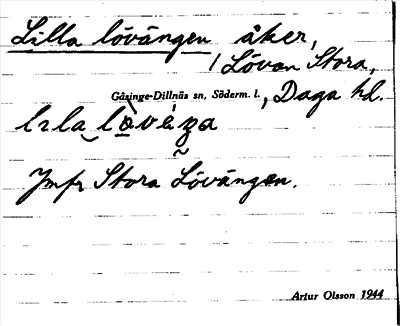 Lilla lövängen åker,
/ Lövan Stora,
Gåsinge-Dillnäs sn, Söderm. l., Daga hd.
Jmfr Stora Lövängen.
Artur Olsson 1944